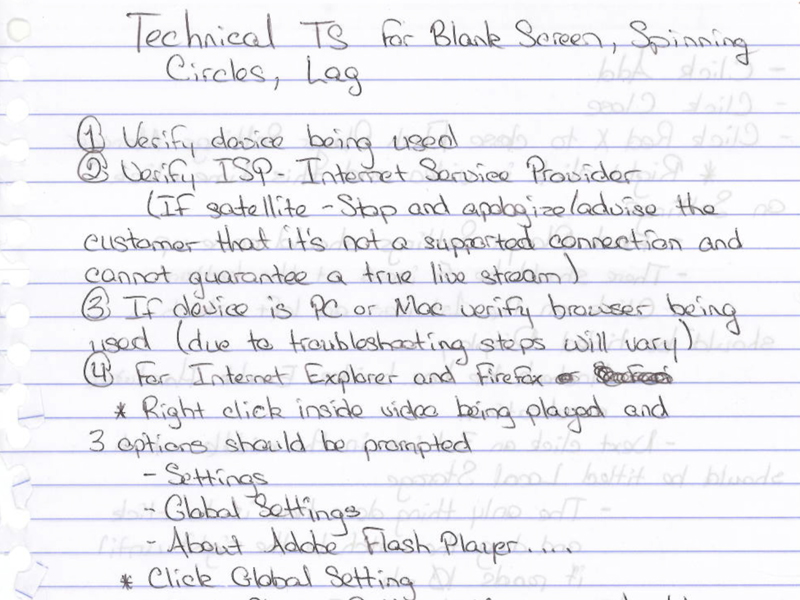 Technical TS for Blank Screen, Spinning
Circles, Lag
① Verify device being used
② Verify ISP - Internet Service Provider
(If satellite - Stop and apologize/advise the
customer that it's not a supported connection and
cannot guarantee a true live stream)
③ If device is PC or Mac verify browser being
used (due to troubleshooting steps will vary)
④ For Internet Explorer and Firefox
* Right click inside video being played and
3 options should be prompted
- Settings
- Global Settings
- About Adobe Flash Player....
* Click Global Setting